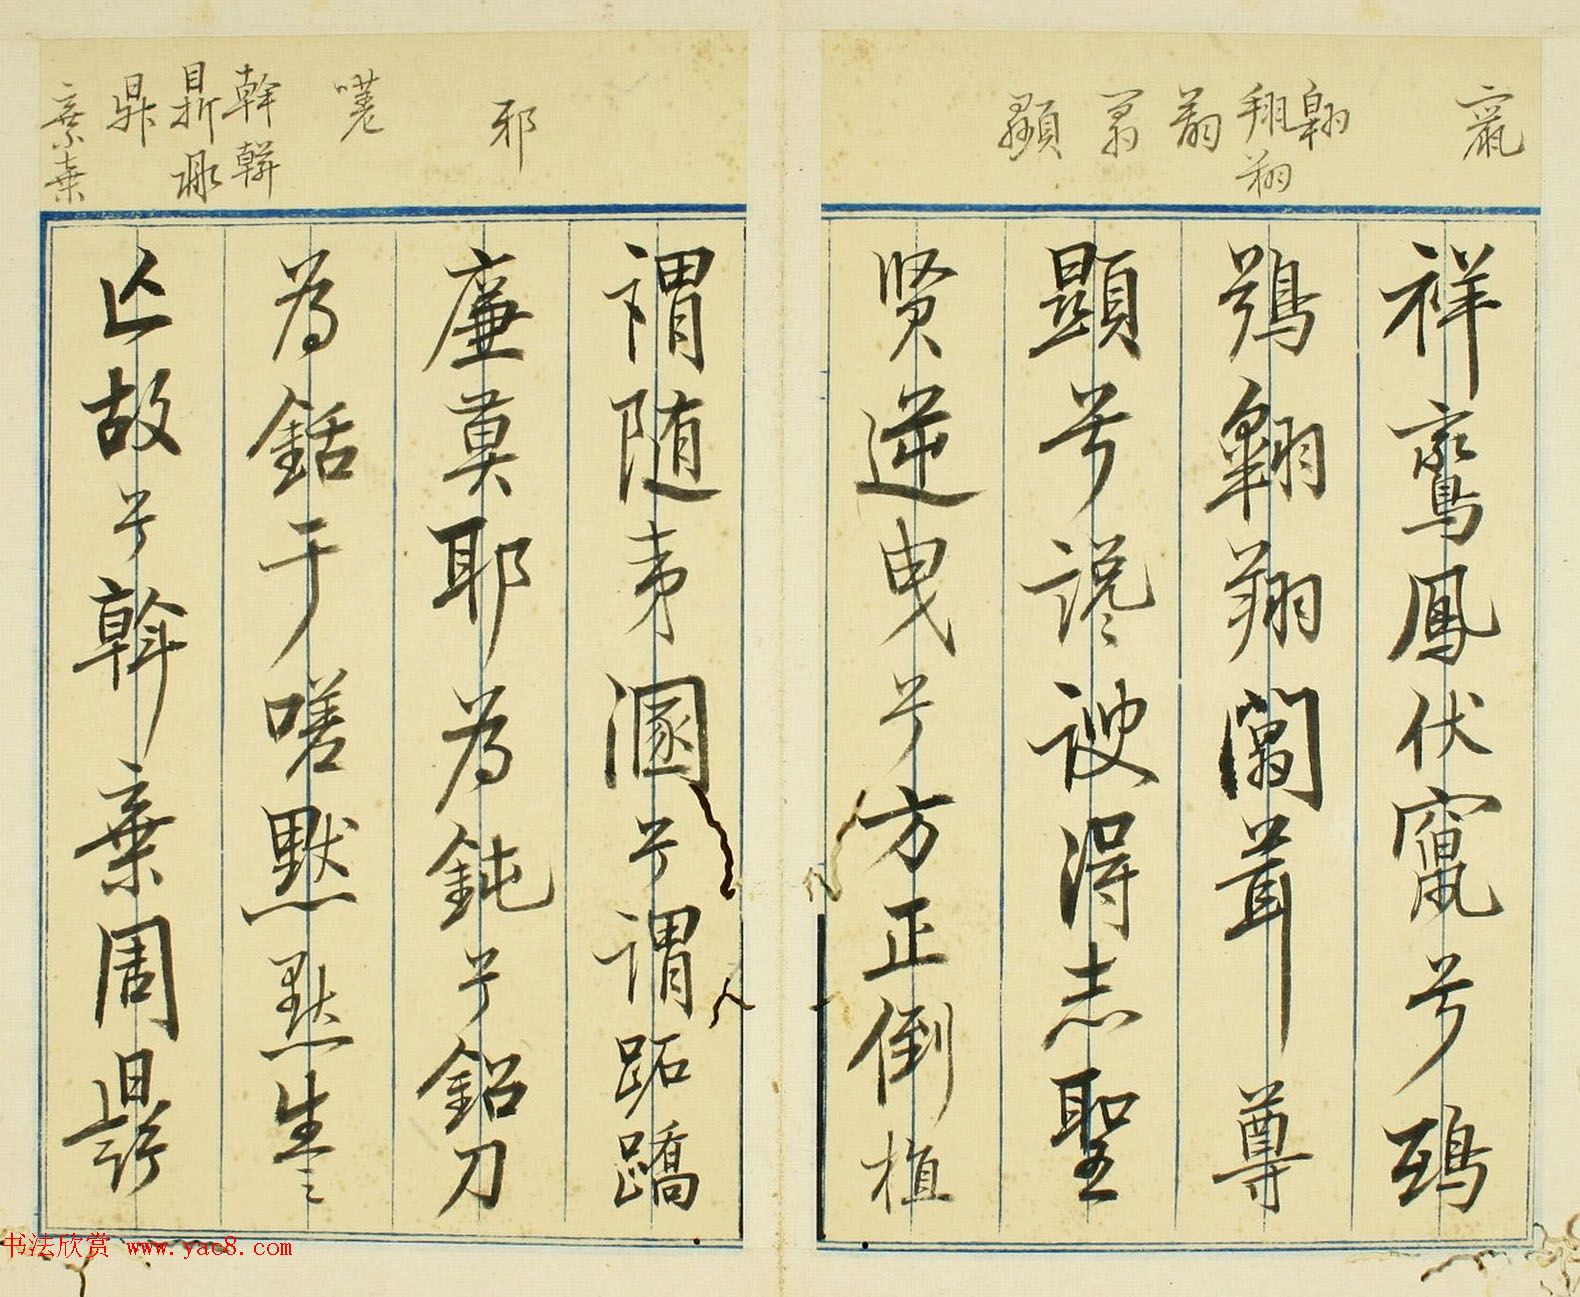 祥鸞鳳伏竄兮鴟
鴞翱翔闒茸尊
顯兮讒諛得志聖
賢逆曳兮方正倒植
謂随夷溷兮謂跖蹻
廉莫耶為鈍兮鉛刀
為銛于嗟默默生之
亡故兮斡棄周鼎
翱
翔
翦
顯
邪
嗟
斡
鼎
棄
书法欣赏 www.yac8.com